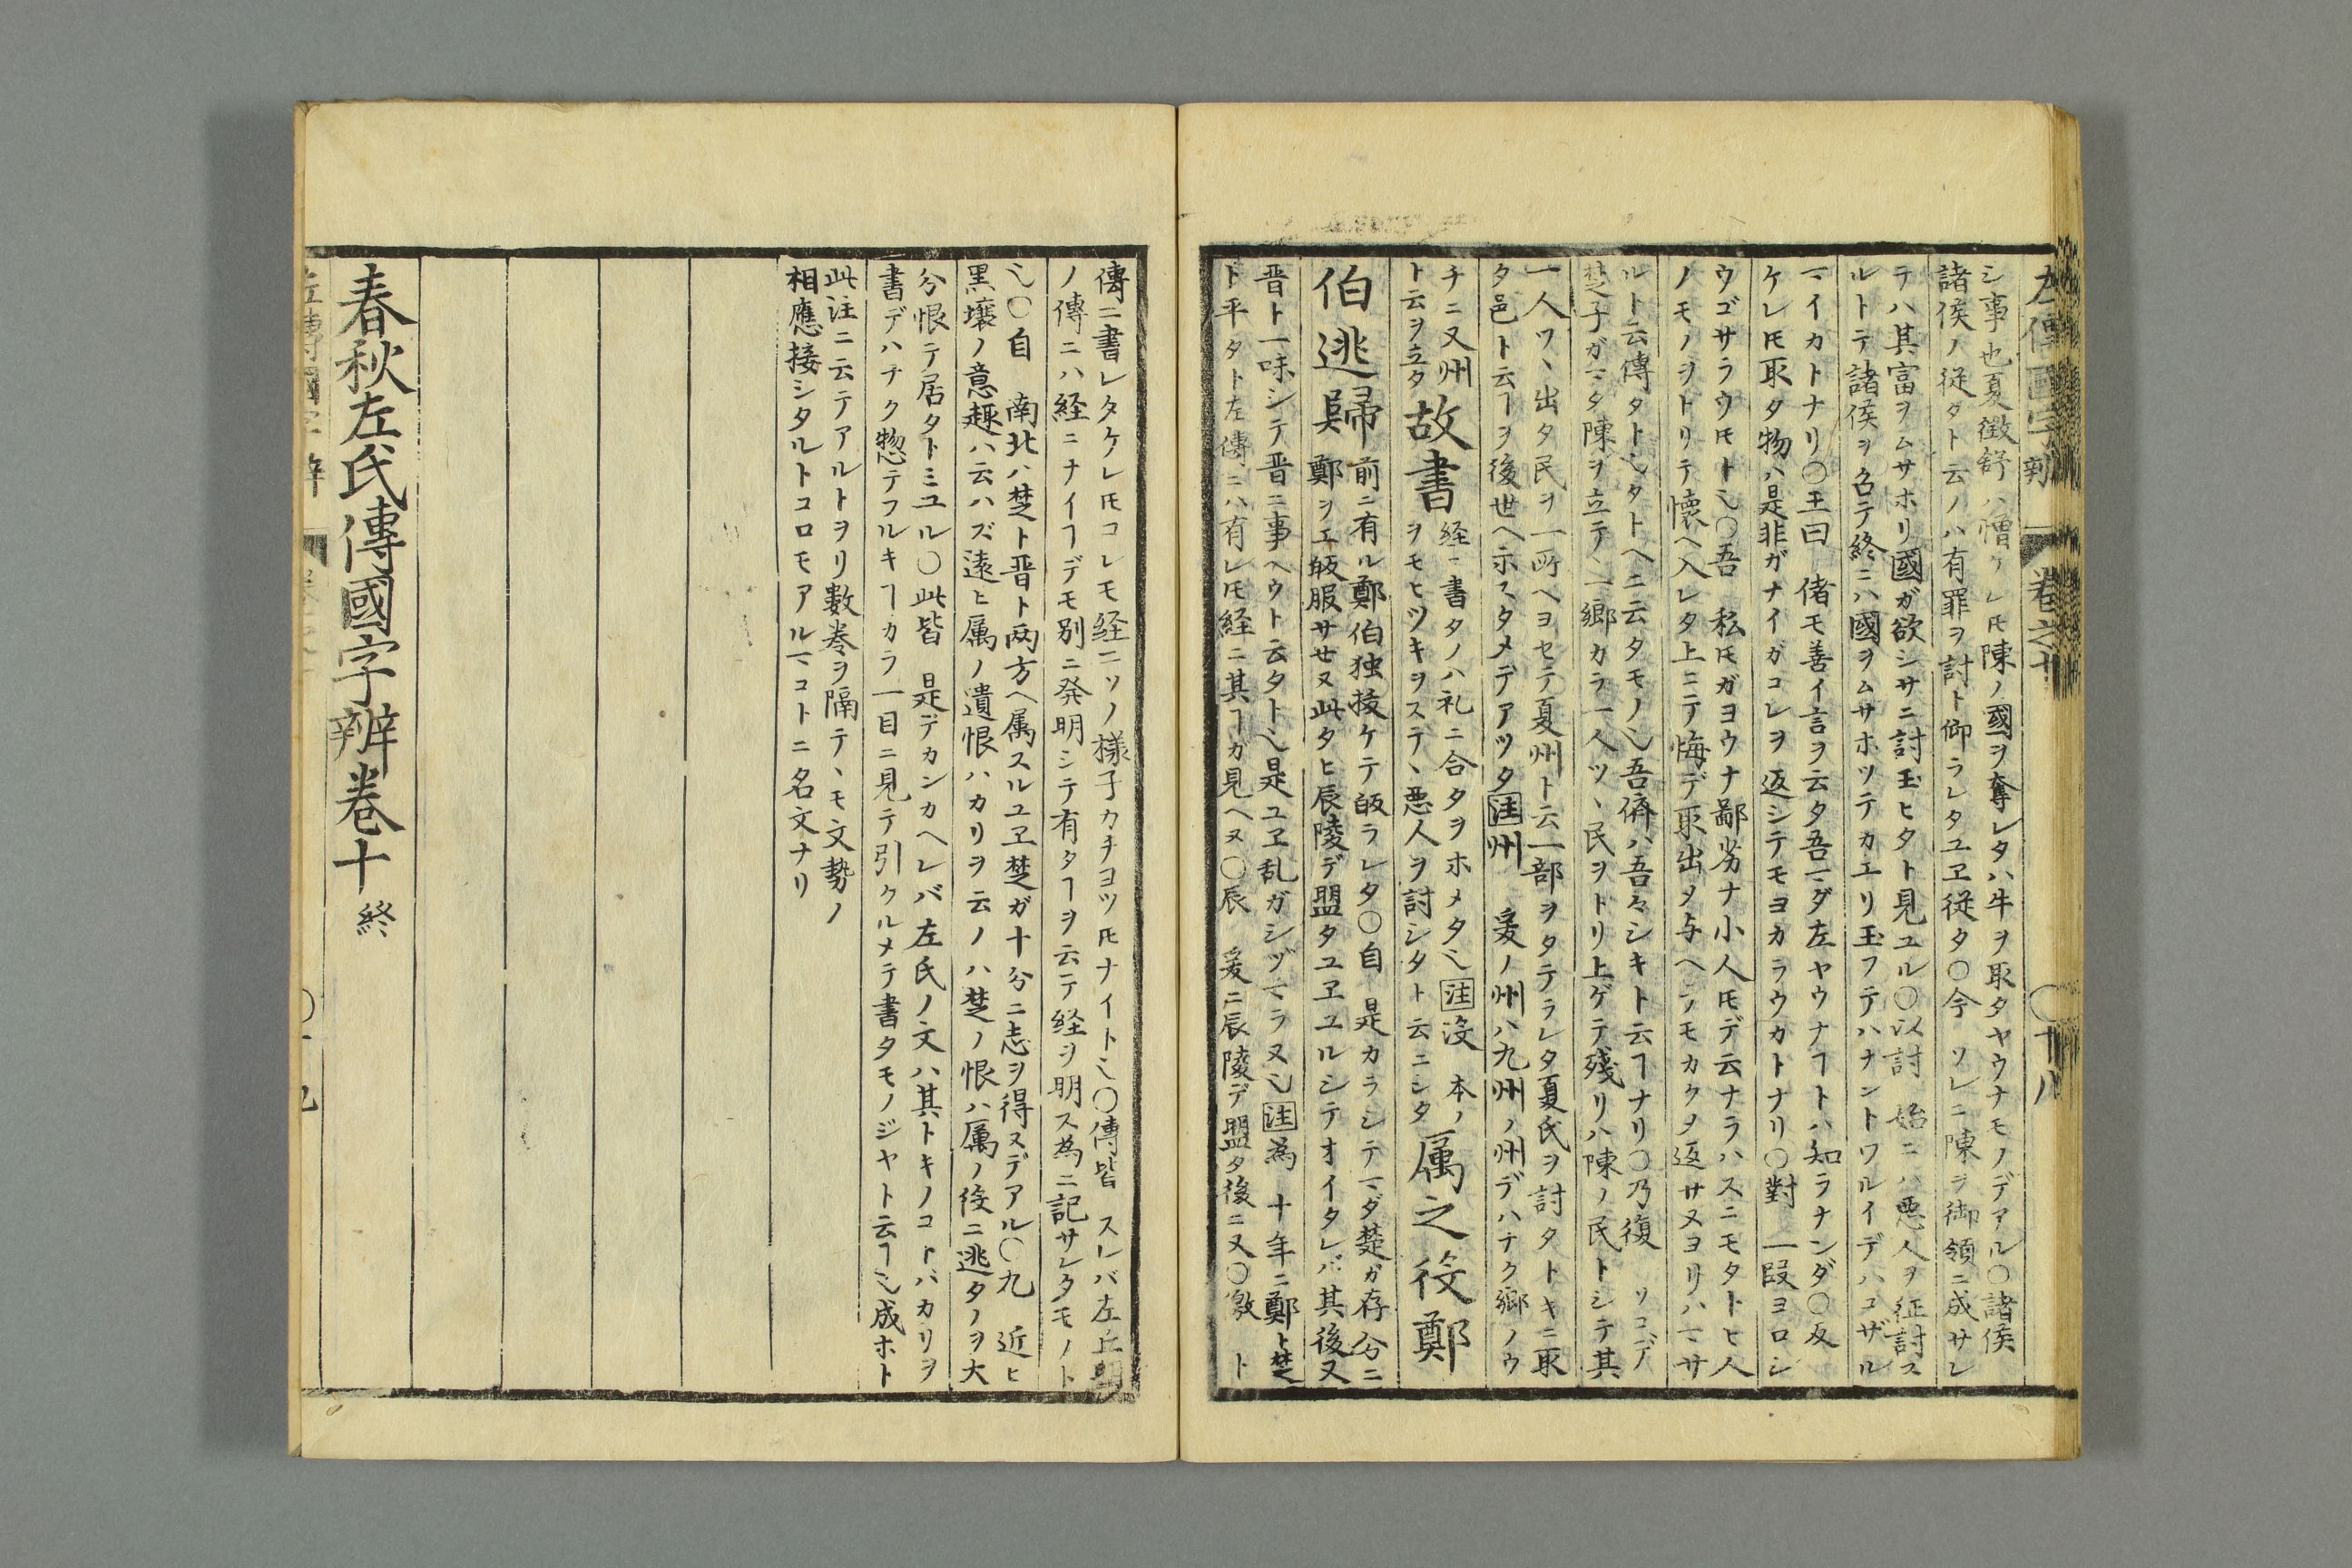 左傳國字辨 卷之十 ○十八
シ事也夏徴舒ハ憎ケレ𪜈陳ノ國ヲ奪レタハ牛ヲ取タヤウナモノデアル○諸侯
諸侯ノ従タト云ノハ有罪ヲ討ト仰ラレタユヱ従タ○今 ソレニ陳ヲ御領ニ成サレ
テハ其富ヲムサホリ國ガ欲シサニ討玉ヒタト見ユル○以討 始ニハ悪人ヲ征討ス
ルトテ諸侯ヲ名テ終ニハ國ヲムサホツテカエリ玉フテハナントワルイデハコザル
マイカトナリ○王曰 偖モ善イ言ヲ云タ吾マダ左ヤウナヿトハ知ラナンダ○反
ケレ𪜈取タ物ハ是非ガナイガコレヲ返シテモヨカラウカトナリ○對 一段ヨロシ
ウゴサラウ𪜈ト〆○吾 私𪜈ガヨウナ鄙劣ナ小人𪜈デ云ナラハスニモタトヒ人
ノモノヲトリテ懐ヘ入レタ上ニテ悔デ取出メ与ヘテモカクメ返サヌヨリハマサ
ルト云傳タト〆タトヘニ云タモノ〆吾儕ハ吾々シキト云ヿナリ○乃復 ソコデ
楚子ガマタ陳ヲ立テヽ一郷カラ一人ツヽ民ヲトリ上ゲテ残リハ陳ノ民トシテ其
一人ツヽ出タ民ヲ一所ヘヨセテ夏州ト云一部ヲタテラレタ夏氏ヲ討タトキニ取
タ邑ト云ヿヲ後世ヘ示スタメデアツタ注州 爰ノ州ハ九州ノ州デハナク郷ノウ
チニ又州
ト云ヲ立タ
故書
経ニ書タノハ礼ニ合タヲホメタ〆注没 本ノ
ヲモヒツキヲステヽ悪人ヲ討シタト云ニシタ
厲之役鄭
伯逃歸
前ニ有ル鄭伯独接ケテ皈ラレタ○自 是カラシテマダ楚ガ存分ニ
呉 鄭ヲエ皈服サセヌ此タヒ辰陵デ盟タユヱユルシテオイタレバ其後又
晋ト一味シテ晋ニ事ヘウト云タト〆是ユヱ乱ガシヅマラヌ〆注為 十年ニ鄭ト楚
ト平タト左傳ニハ有レ𪜈経ニ其ヿガ見ヘヌ○辰 爰ニ辰陵デ盟タ後ニ又○徼 ト
傳ニ書レタケレ𪜈コレモ経ニソノ様子カチヨツ𪜈ナイト〆○傳皆 スレバ左丘明
ノ傳ニハ経ニナイヿデモ別ニ発明シテ有タヿヲ云テ経ヲ明ス為ニ記サレタモノト
〆○自 南北ハ楚ト晋ト両方ヘ属スルユヱ楚ガ十分ニ志ヲ得ヌデアル○九 近ヒ
黒壤ノ意趣ハ云ハズ遠ヒ厲ノ遺恨ハカリヲ云ノハ楚ノ恨ハ厲ノ役ニ逃タノヲ大
分恨テ居タトミユル○此皆 是デカンカヘレバ左氏ノ文ハ其トキノコトバカリヲ
書デハナク惣テフルキヿカラ一目ニ見テ引クルメテ書タモノジヤト云ヿ〆成ホト
此注ニ云テアルトヲリ数巻ヲ隔テヽモ文勢ノ
相應接シタルトコロモアルマコトニ名文ナリ
春秋左氏傳國字辨卷十 終